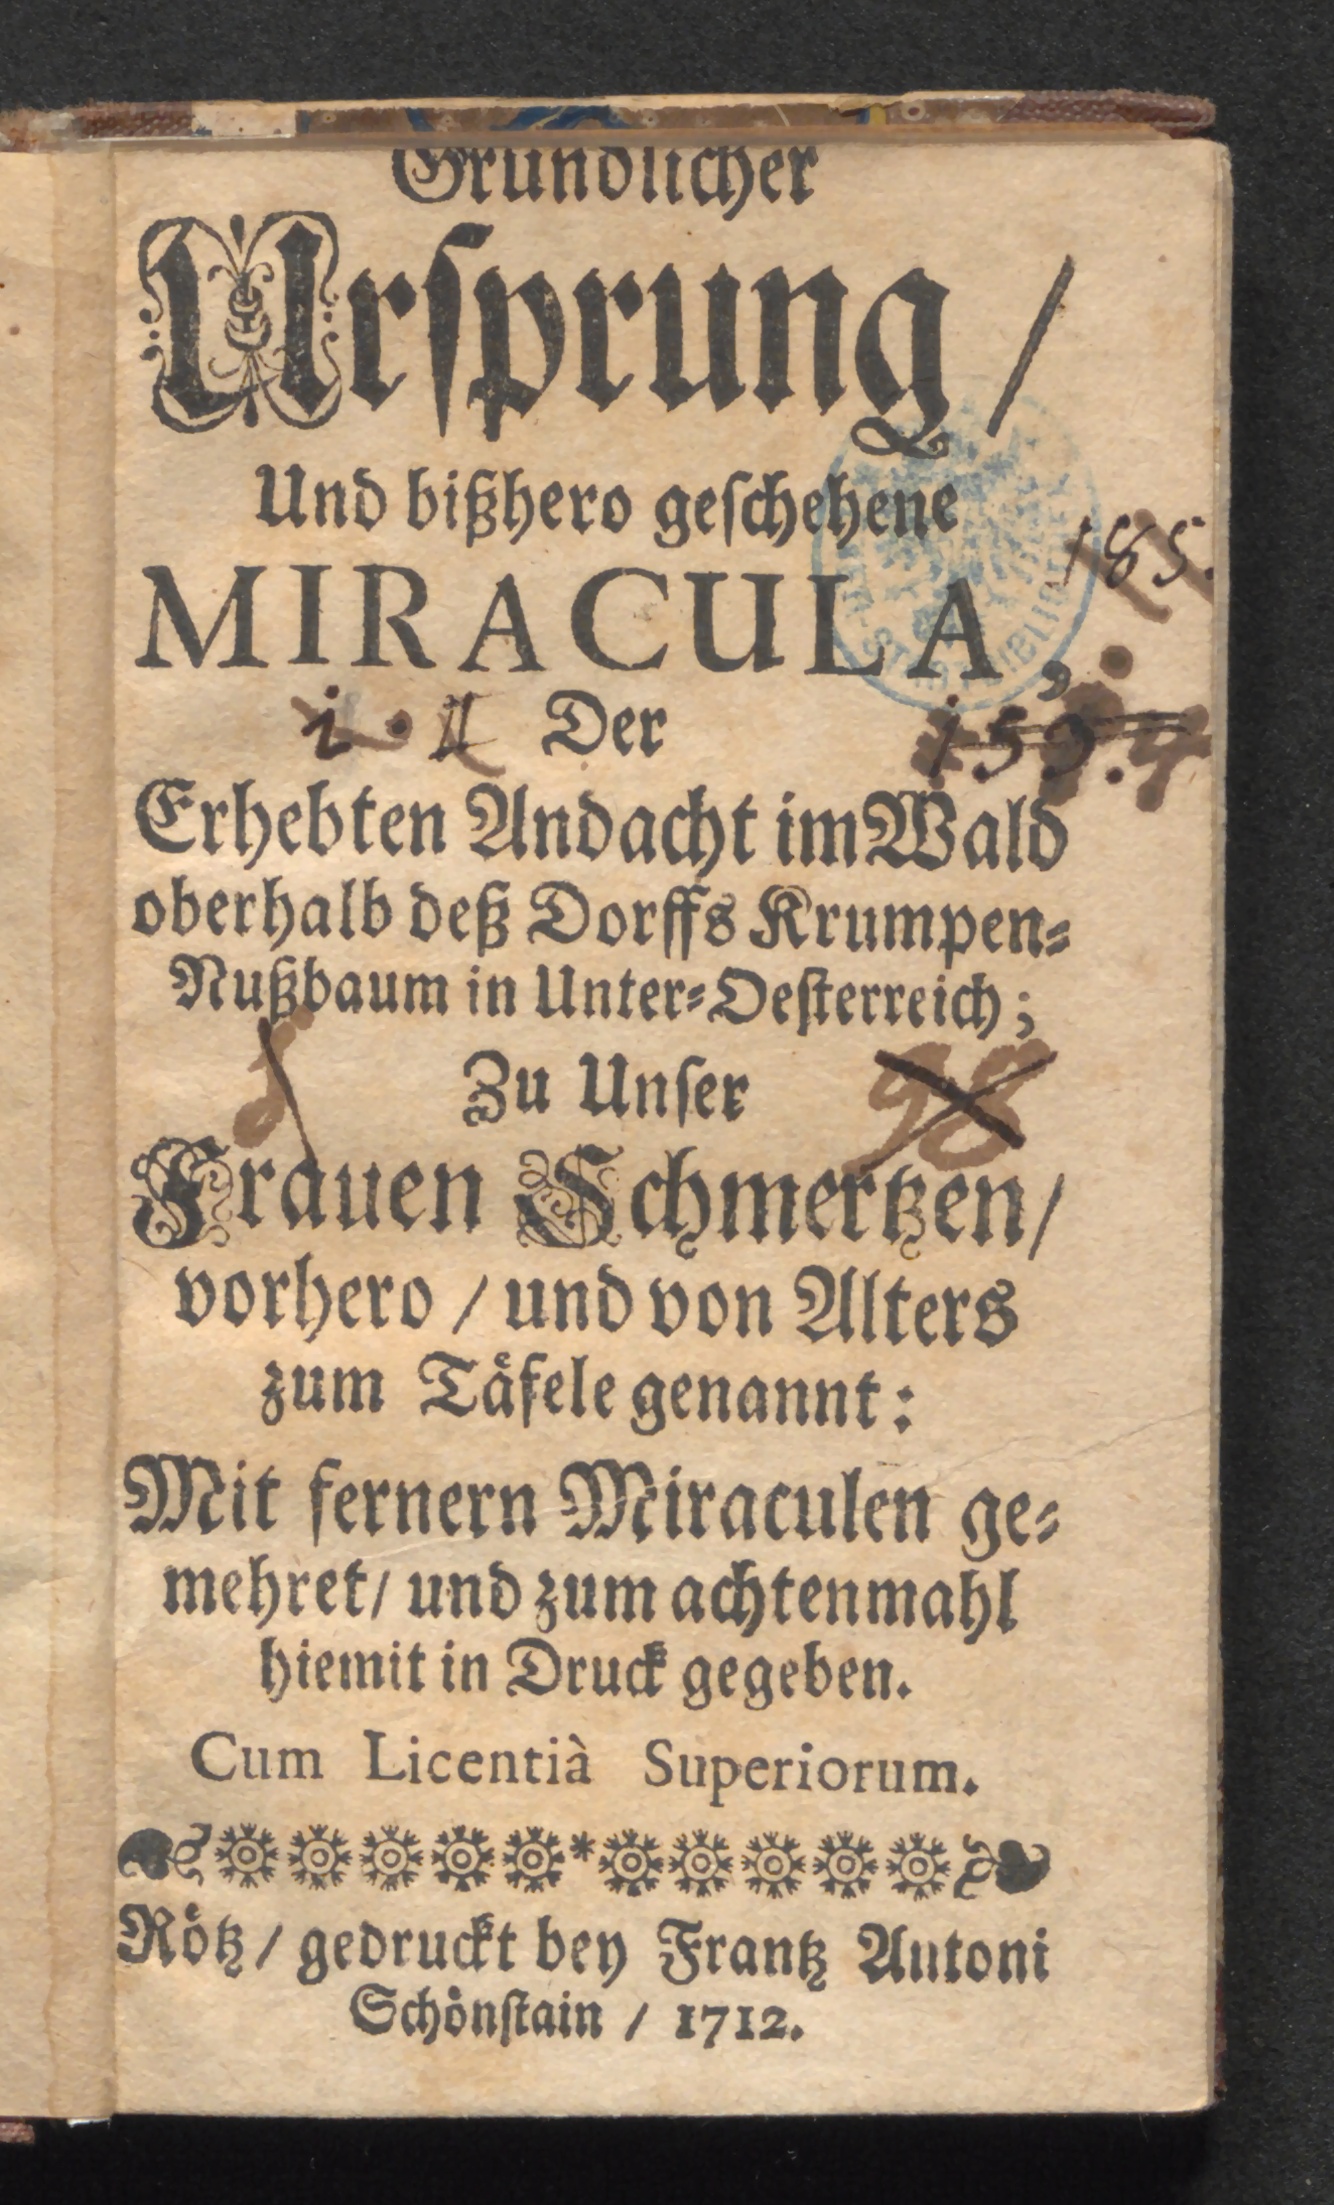 Gründlicher
Ursprung /
Und bißhero geschehene
MIRACULA,
185.
Der
Erhebten Andacht im Wald
oberhalb deß Dorffs Krumpen-
Nußbaum in Unter-Oesterreich;
Zu Unser
98
Frauen Schmertzen /
vorhero / und von Alters
zum Täfele genannt:
Mit fernern Miraculen ge-
mehret / und zum achtenmahl
hiemit in Druck gegeben.
Cum Licentià Superiorum.
Rötz / gedruckt bey Frantz Antoni
Schönstain / 1712.